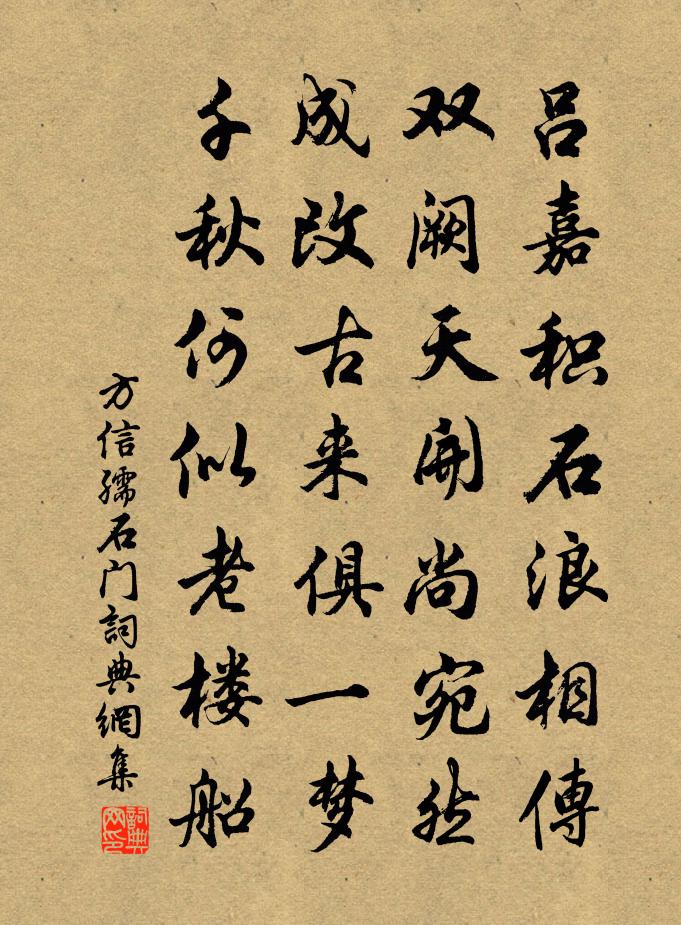 吕嘉积石浪相傳
双阙天開尚宛然
成改古来俱一梦
千秋何似老楼船
方信孺石门詞典網集
詞典網印